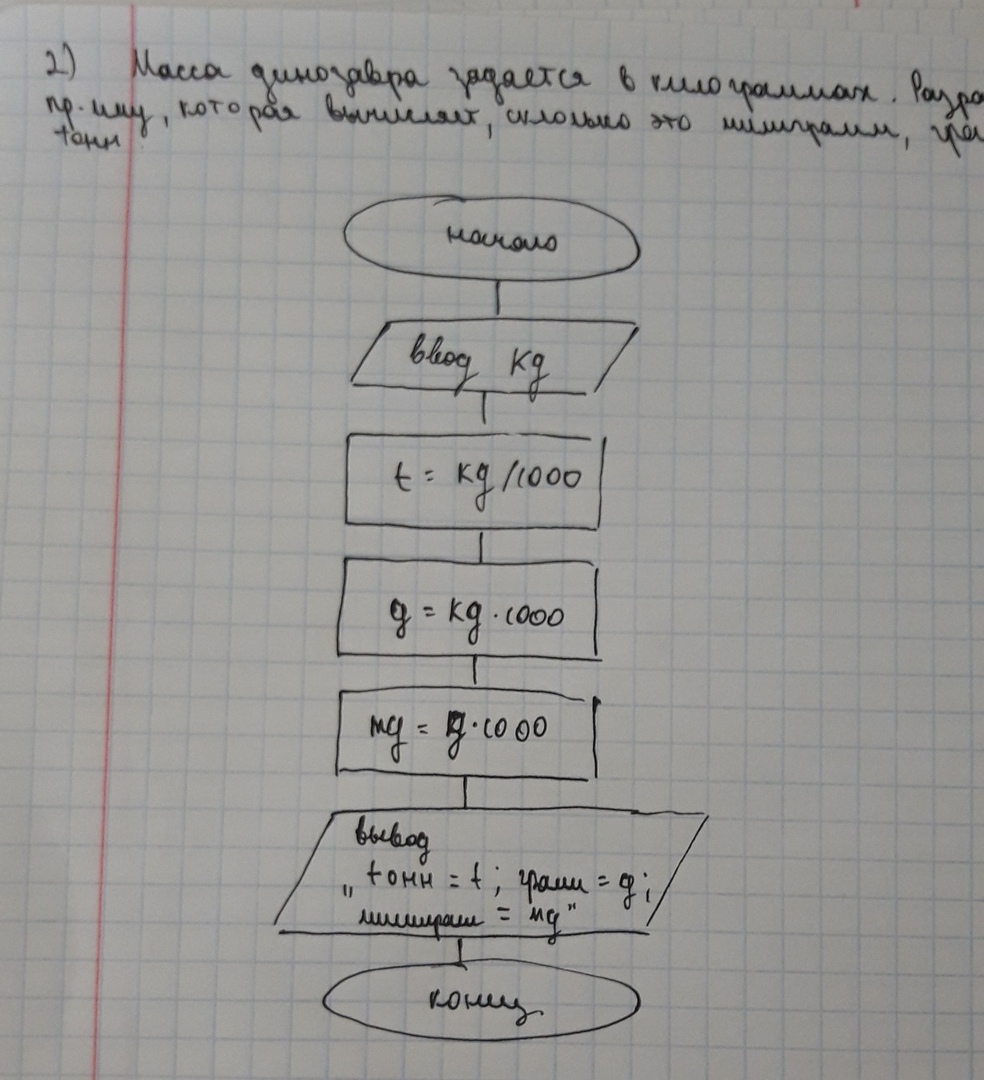 2) Масса динозавра задается в килограммах. Разра
пр-мму, которая вычисляет, сколько это миллиграмм, гра
тонн
начало
ввод kg
t = kg/1000
g = kg · 1000
mg = g · 1000
вывод
„тонн = t; грамм = g;
миллиграмм = mg"
конец